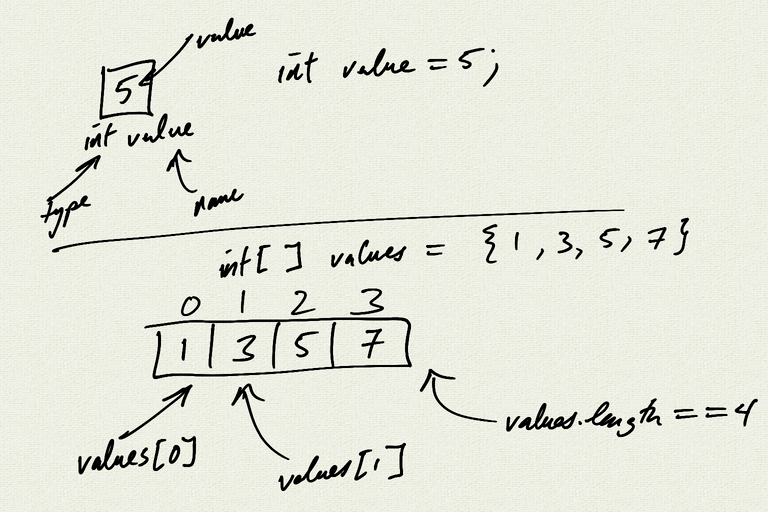 value
5
int value = 5;
int value
type
name
int[ ] values = {1, 3, 5, 7}
0 1 2 3
1 3 5 7
values.length == 4
values[0]
values[1]